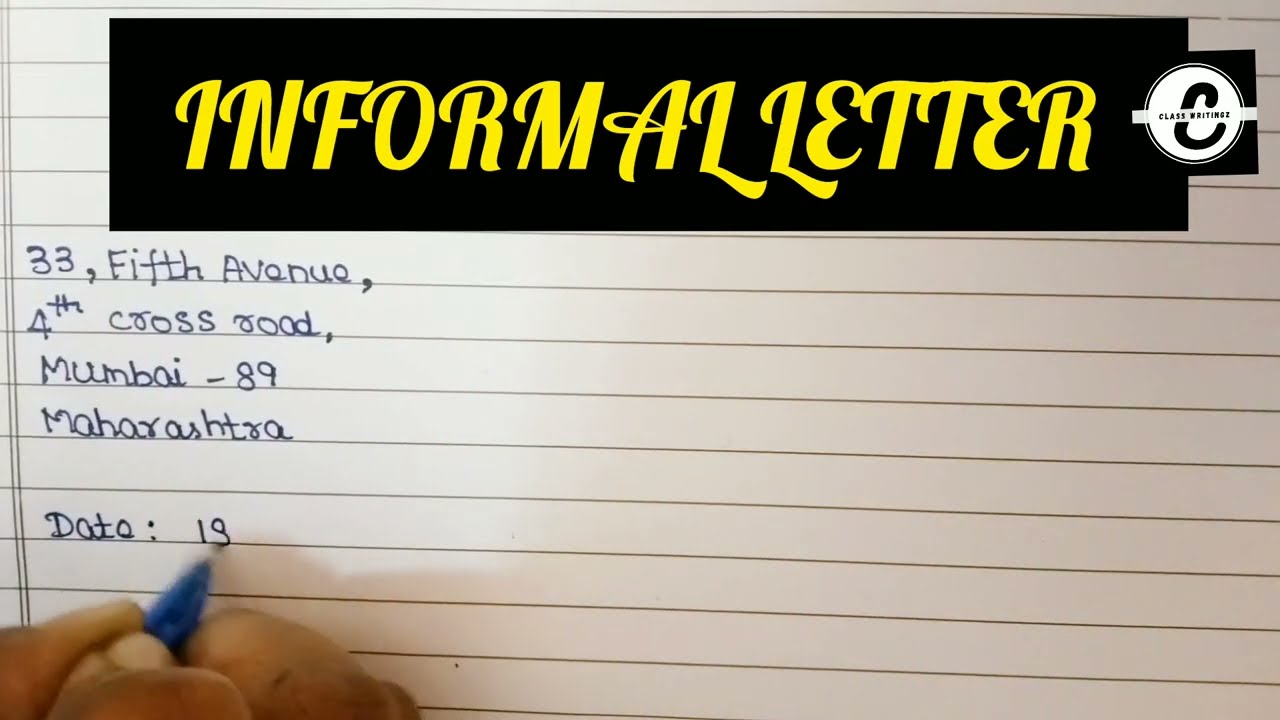 INFORMAL LETTER
C
CLASS WRITINGZ
33, Fifth Avenue,
4th cross road,
Mumbai - 89
Maharashtra
Date: 19